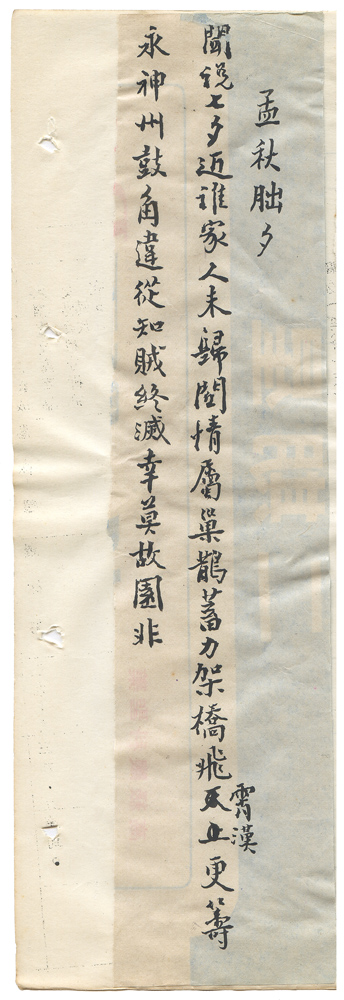 孟秋朏夕
聞說七夕近誰家人未歸問情屬巢鵲蓄力架橋飛天上更籌
霄漢
永神州鼓角違從知賊終滅幸莫故園非